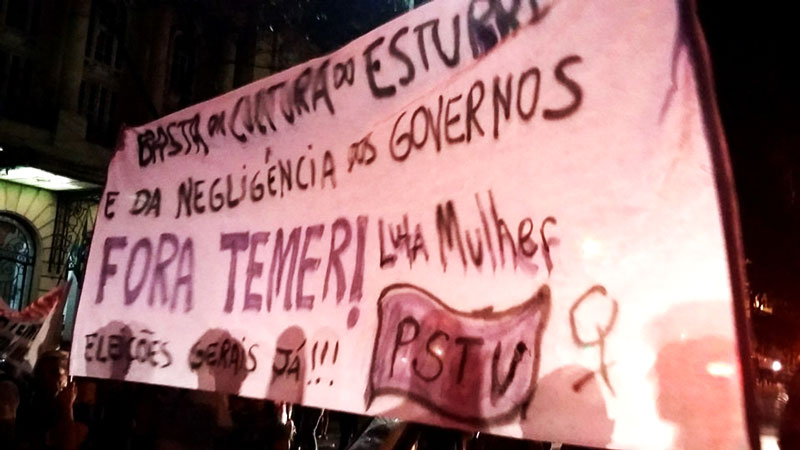 BASTA DA CULTURA DO ESTUPRO
E DA NEGLIGÊNCIA DOS GOVERNOS
FORA TEMER!
Luta Mulher
ELEIÇÕES GERAIS JÁ!!!
PSTU